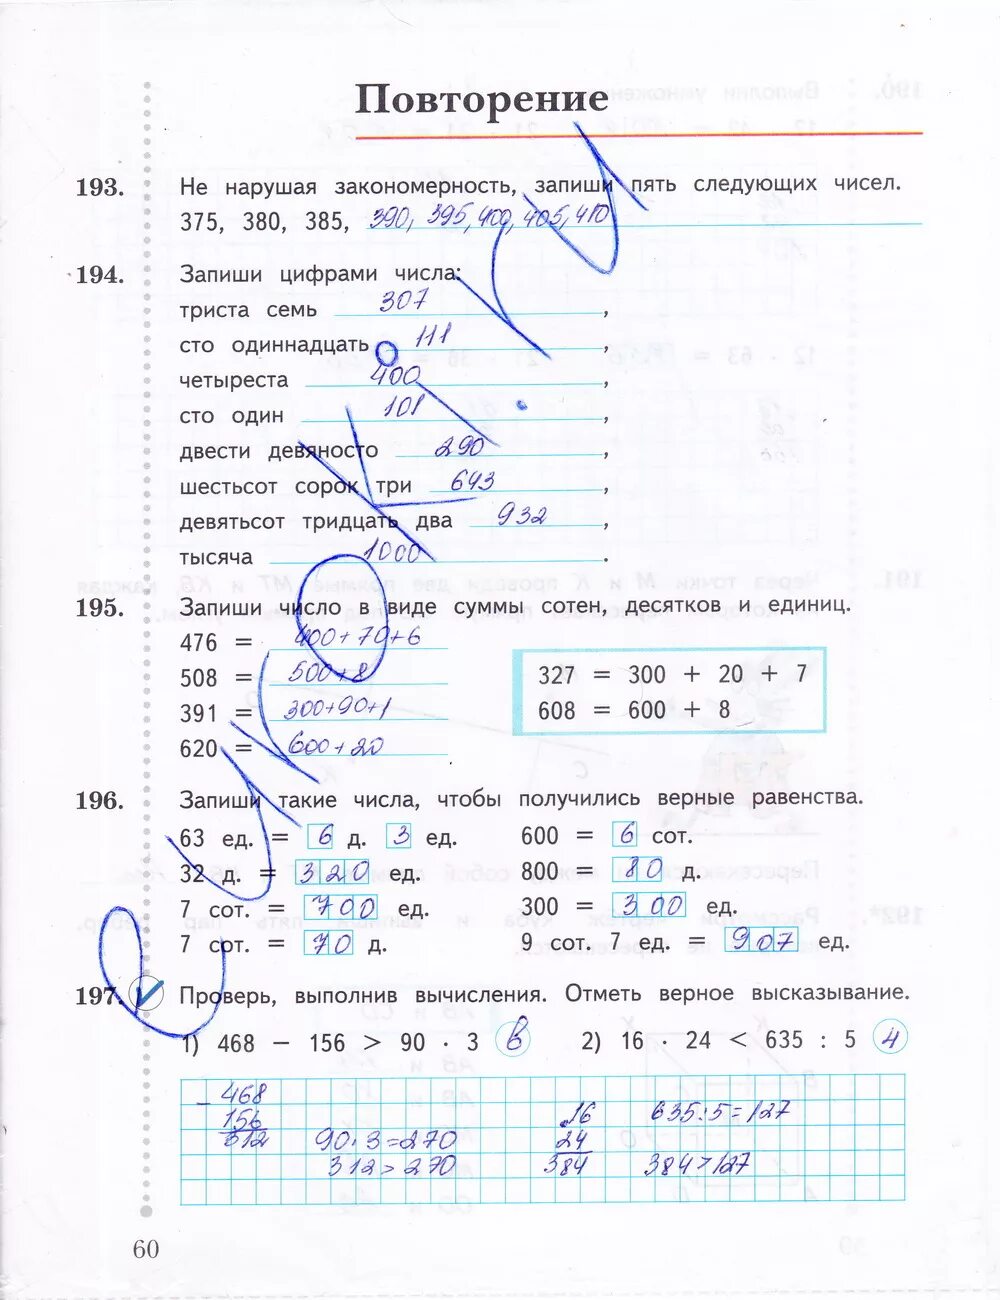 Повторение
193. Не нарушая закономерность, запиши пять следующих чисел.
375, 380, 385, 390, 395, 400, 405, 410
194. Запиши цифрами числа:
триста семь 307,
сто одиннадцать 111,
четыреста 400,
сто один 101,
двести девяносто 290,
шестьсот сорок три 643,
девятьсот тридцать два 932,
тысяча 1000.
195. Запиши число в виде суммы сотен, десятков и единиц.
476 = 400+70+6
508 = 500+8
391 = 300+90+1
620 = 600+20
327 = 300 + 20 + 7
608 = 600 + 8
196. Запиши такие числа, чтобы получились верные равенства.
63 ед. = 6 д. 3 ед. 600 = 6 сот.
32 д. = 320 ед. 800 = 80 д.
7 сот. = 700 ед. 300 = 300 ед.
7 сот. = 70 д. 9 сот. 7 ед. = 907 ед.
197. Проверь, выполнив вычисления. Отметь верное высказывание.
1) 468 − 156 > 90 · 3 В 2) 16 · 24 < 635 : 5 Ч
− 468
156
312
90·3=270
312>270
·16
24
384
635:5=127
384>127
60